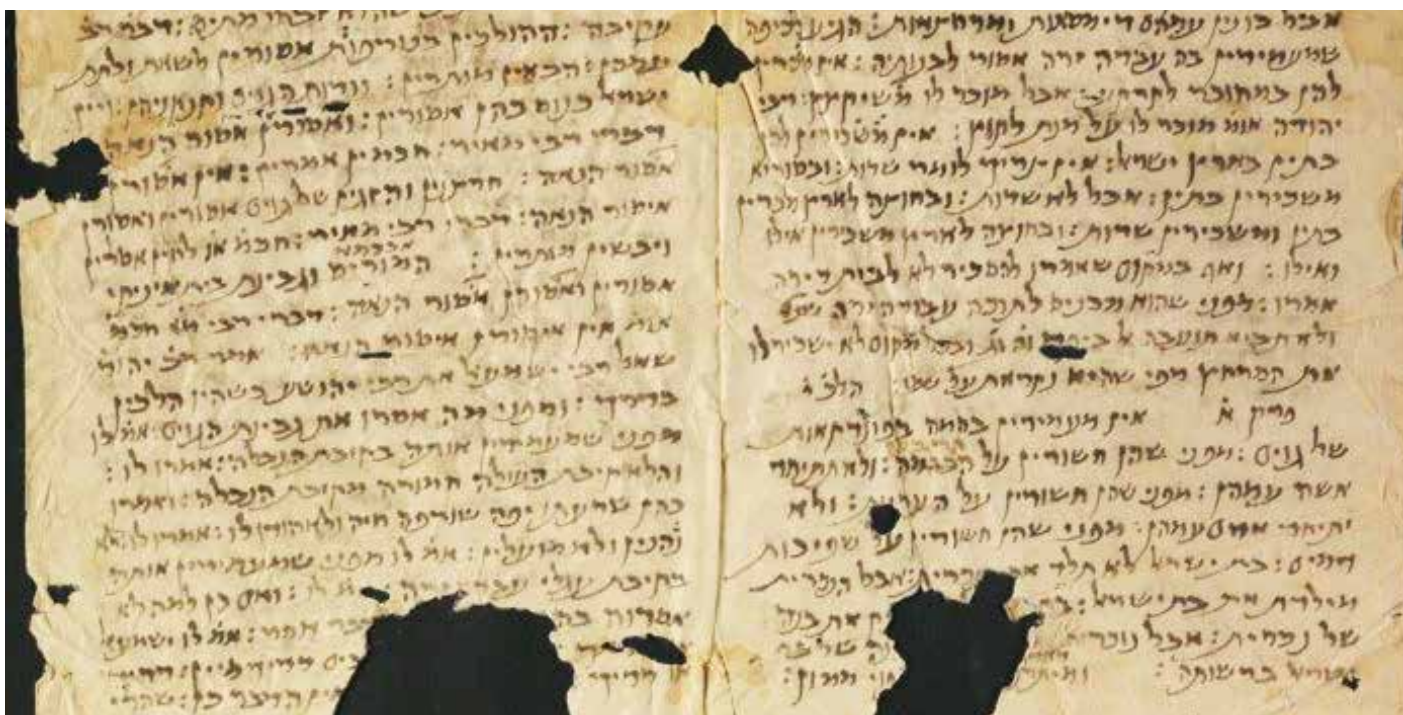 אבל בונין עמהם דימסאות ומרחצאות : הגיעו לכיפה
שמעמידים בה עבדה זרה אסור לבנותה : אין מוכרין
להן במחובר לקרקע : אבל מוכר לו משיקצץ : רבי
יהודה אומ מוכר לו על מנת לקוץ : אין משכירים להן
בתים בארץ ישראל : אין צריך לומר שדות : ובסוריא
משכירין בתים : אבל לא שדות : ובחוצה לארץ מכרין
בתין ומשכירים שדות : ובחוצה לארץ משכירין אילו
ואילו : ואף במקום שאמרו להסכיר לא לבית דירה
אמרו : מפני שהוא מכניס לתוכה עבודה זרה שנ
ולא תביא תועבה אל ביתך ובכל מקום לא ישכיר לו
את המרחץ מפני שהיא נקראת על שמו : הלכ ז
פרק א אין מעמידים בהמה בפונדקאות
של גוים : מפני שהן חשודין על הבהמה : ולא תתיחד
אשה עמהן : מפני שהן חשודין על העריות : ולא
יתיחד אדם עמהן : מפני שהן חשודין על שפיכות
דמים : בת ישראל לא תלד את הנכרית : אבל הנכרית
מילדת את בת ישראל : את בנה
של נכרית : אבל נוכרית של בת
ישראל ברשותה : ממון :
מתים : דברי רב
עקיבה : ההולכים בתורפות אסורים לשאת ולתת
עמהן : הבאים מותרים : נודות הגוים וקנקניהן : ויין
ישראל כנוס בהן אסורים : ואסורין אסור הנאה
דברי רבי מאיר : חכמים אמרים : אין אסורין
אסור הנאה : חרצנין והזגים של גוים אסורים ואסורין
איסור הנאה : דברי רבי מאיר : חכמ או לחין אסרין
ויבשים מותרים : המורייס וגבינת בית אינייקי
אסורים ואסורן אסור הנאה : דברי רבי מא חכמ
אומ אין איסורים איסור הנאה : אמר רבי יהוד
שאל רבי ישמעאל את רבי יהושע כשהיו הלכין
בדרך : ומפני מה אסרו את גבינת הגוים אמ לו
מפני שמעמידין אותה בקיבת הנבלה : אמרו לו :
והלא קיבת העולה חמורה מקיבת הנבלה : ואמרו
כהן שדעתו יפה שורפה חיה ולא הודו לו : אמרו לו לא
נהנין ולא מועלין : אמ לו מפני שמעמידים אותה
בקיבת עגלי עבודה זרה לו : ואם כן למה לא
אסרוה דבר אחר : אמ לו ישמעאל
הדבר כן : שהרי